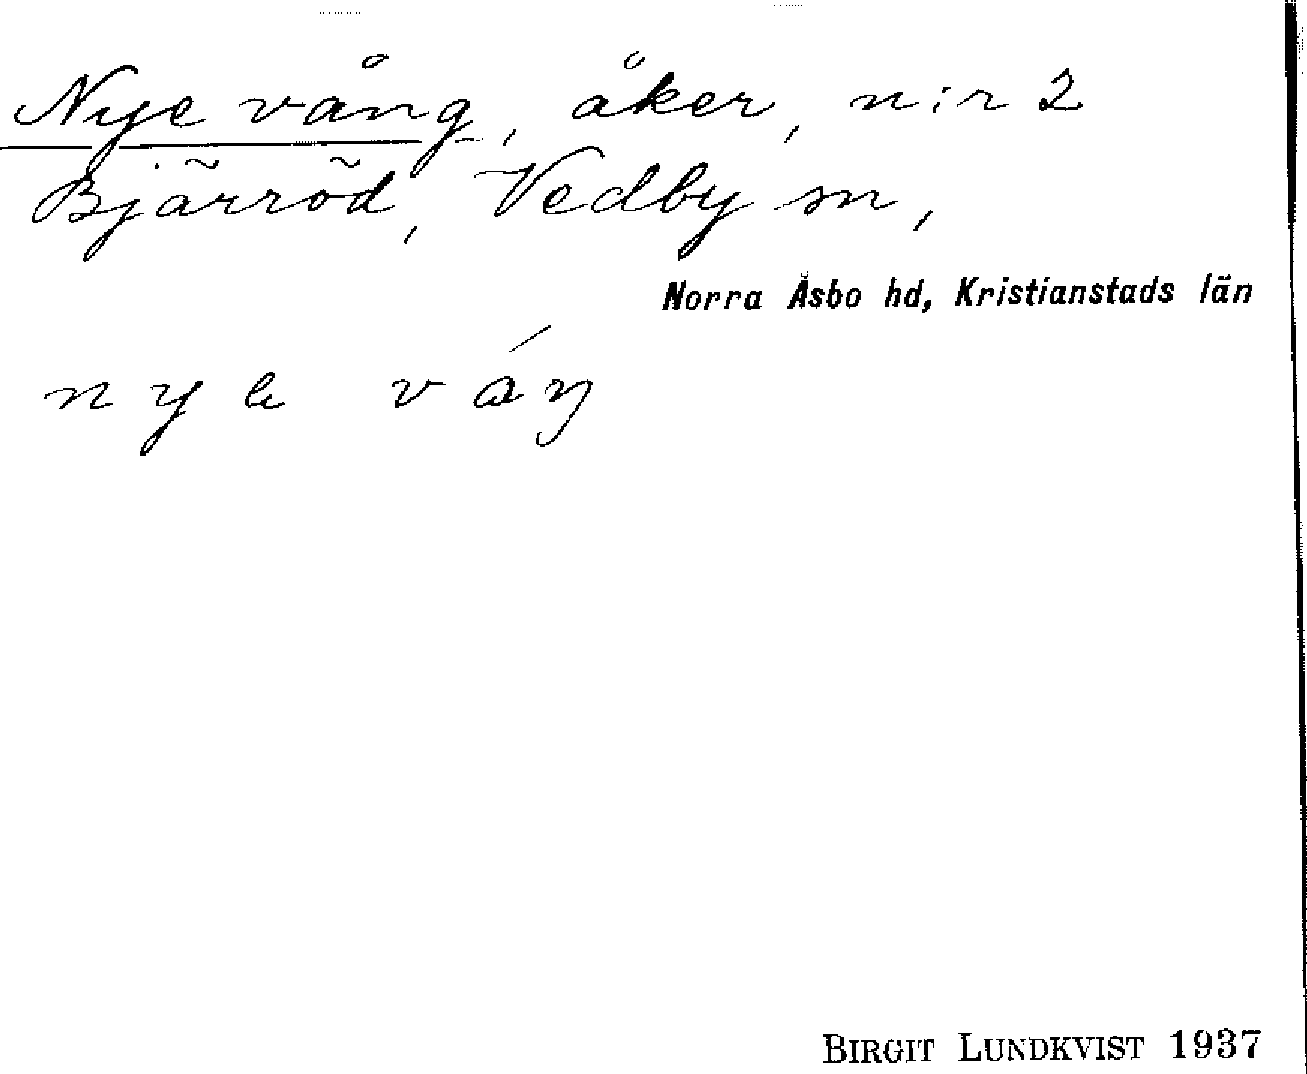 Nye vång, åker, n:r 2
Bjärröd, Vedby sn,
Norra Åsbo hd, Kristianstads län
BIRGIT LUNDKVIST 1937